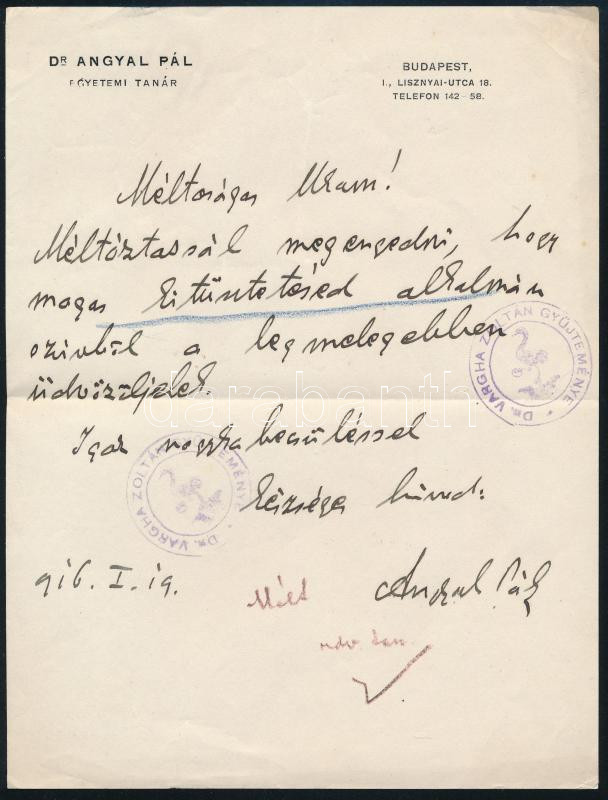 DR ANGYAL PÁL
EGYETEMI TANÁR
BUDAPEST,
I., LISZNYAI-UTCA 18.
TELEFON 142-58.
Méltóságos Uram!
Méltóztassál megengedni, hogy
magas kitüntetésed alkalmán
szívből a legmelegebben
üdvözöljelek.
Igaz nagyrabecsüléssel
készséges híved:
916. I. 19.
Angyal Pál
DR. VARGHA ZOLTÁN GYÜJTEMÉNYE
DR. VARGHA ZOLTÁN GYÜJTEMÉNYE
darabanth